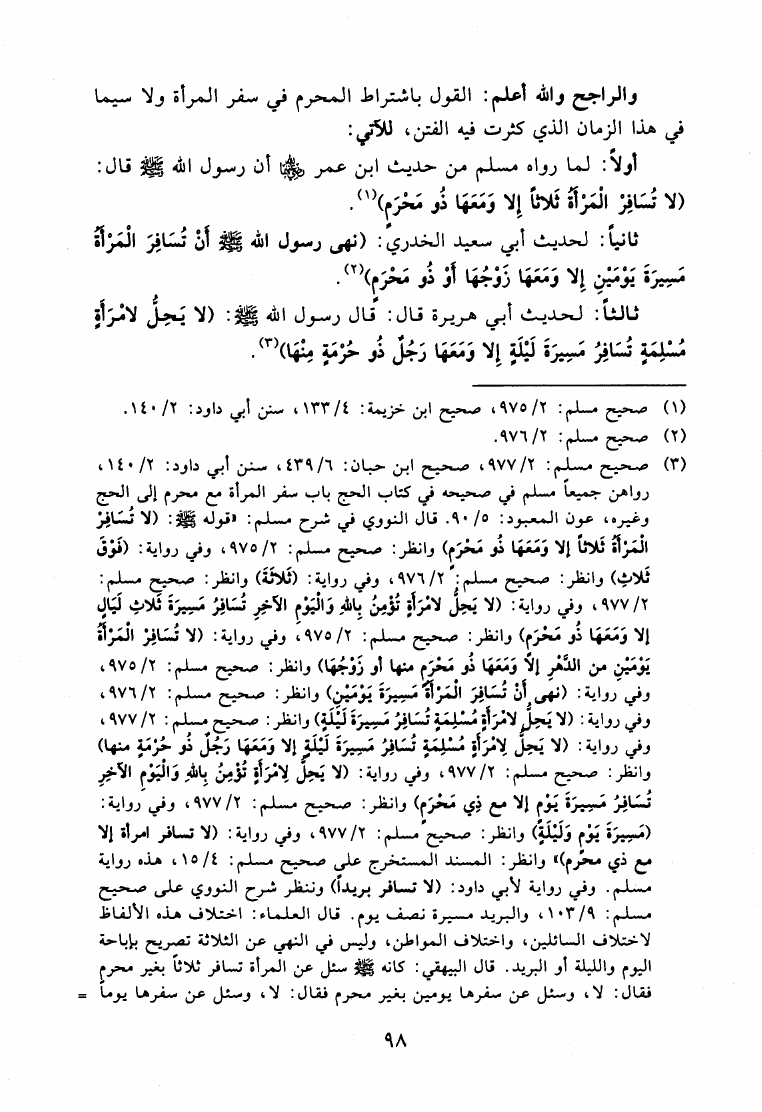 والراجح والله أعلم: القول باشتراط المحرم في سفر المرأة ولا سيما
في هذا الزمان الذي كثرت فيه الفتن، للآتي:
أولاً: لما رواه مسلم من حديث ابن عمر رضي الله عنهما أن رسول الله ﷺ قال:
(لا تُسَافِرْ الْمَرْأَةُ ثَلاثاً إِلا وَمَعَهَا ذُو مَحْرَمٍ)(١).
ثانياً: لحديث أبي سعيد الخدري: (نهى رسول الله ﷺ أَنْ تُسَافِرَ الْمَرْأَةُ
مَسِيرَةَ يَوْمَيْنِ إِلا وَمَعَهَا زَوْجُهَا أَوْ ذُو مَحْرَمٍ)(٢).
ثالثاً: لحديث أبي هريرة قال: قال رسول الله ﷺ: (لا يَحِلُّ لامْرَأَةٍ
مُسْلِمَةٍ تُسَافِرُ مَسِيرَةَ لَيْلَةٍ إِلا وَمَعَهَا رَجُلٌ ذُو حُرْمَةٍ مِنْهَا)(٣).
(١) صحيح مسلم: ٩٧٥/٢، صحيح ابن خزيمة: ١٣٣/٤، سنن أبي داود: ١٤٠/٢.
(٢) صحيح مسلم: ٩٧٦/٢.
(٣) صحيح مسلم: ٩٧٧/٢، صحيح ابن حبان: ٤٣٩/٦، سنن أبي داود: ١٤٠/٢،
رواهن جميعاً مسلم في صحيحه في كتاب الحج باب سفر المرأة مع محرم إلى الحج
وغيره، عون المعبود: ٩٠/٥. قال النووي في شرح مسلم: «قوله ﷺ: (لا تُسَافِرْ
الْمَرْأَةُ ثَلاثاً إِلا وَمَعَهَا ذُو مَحْرَمٍ) وانظر: صحيح مسلم: ٩٧٥/٢، وفي رواية: (فَوْقَ
ثَلاثٍ) وانظر: صحيح مسلم: ٩٧٦/٢، وفي رواية: (ثَلاثَةً) وانظر: صحيح مسلم:
٩٧٧/٢، وفي رواية: (لا يَحِلُّ لامْرَأَةٍ تُؤْمِنُ بِاللهِ وَالْيَوْمِ الآخِرِ تُسَافِرُ مَسِيرَةَ ثَلاثِ لَيَالٍ
إِلا وَمَعَهَا ذُو مَحْرَمٍ) وانظر: صحيح مسلم: ٩٧٥/٢، وفي رواية: (لا تُسَافِرْ الْمَرْأَةُ
يَوْمَيْنِ من الدَّهْرِ إِلاَّ وَمَعَهَا ذُو مَحْرَمٍ منها أو زَوْجُهَا) وانظر: صحيح مسلم: ٩٧٥/٢،
وفي رواية: (نهى أَنْ تُسَافِرَ الْمَرْأَةُ مَسِيرَةَ يَوْمَيْنِ) وانظر: صحيح مسلم: ٩٧٦/٢،
وفي رواية: (لا يَحِلُّ لامْرَأَةٍ مُسْلِمَةٍ تُسَافِرُ مَسِيرَةَ لَيْلَةٍ) وانظر: صحيح مسلم: ٩٧٧/٢،
وفي رواية: (لا يَحِلُّ لِامْرَأَةٍ مُسْلِمَةٍ تُسَافِرُ مَسِيرَةَ لَيْلَةٍ إِلا وَمَعَهَا رَجُلٌ ذُو حُرْمَةٍ منها)
وانظر: صحيح مسلم: ٩٧٧/٢، وفي رواية: (لا يَحِلُّ لِامْرَأَةٍ تُؤْمِنُ بِاللهِ وَالْيَوْمِ الآخِرِ
تُسَافِرُ مَسِيرَةَ يَوْمٍ إلا مع ذِي مَحْرَمٍ) وانظر: صحيح مسلم: ٩٧٧/٢، وفي رواية:
(مَسِيرَةَ يَوْمٍ وَلَيْلَةٍ) وانظر: صحيح مسلم: ٩٧٧/٢، وفي رواية: (لا تسافر امرأة إلا
مع ذي محرم)» وانظر: المسند المستخرج على صحيح مسلم: ١٥/٤، هذه رواية
مسلم. وفي رواية لأبي داود: (لا تسافر بريداً) وننظر شرح النووي على صحيح
مسلم: ١٠٣/٩، والبريد مسيرة نصف يوم. قال العلماء: اختلاف هذه الألفاظ
لاختلاف السائلين، واختلاف المواطن، وليس في النهي عن الثلاثة تصريح بإباحة
اليوم والليلة أو البريد. قال البيهقي: كانه ﷺ سئل عن المرأة تسافر ثلاثاً بغير محرم
فقال: لا، وسئل عن سفرها يومين بغير محرم فقال: لا، وسئل عن سفرها يوماً =
٩٨